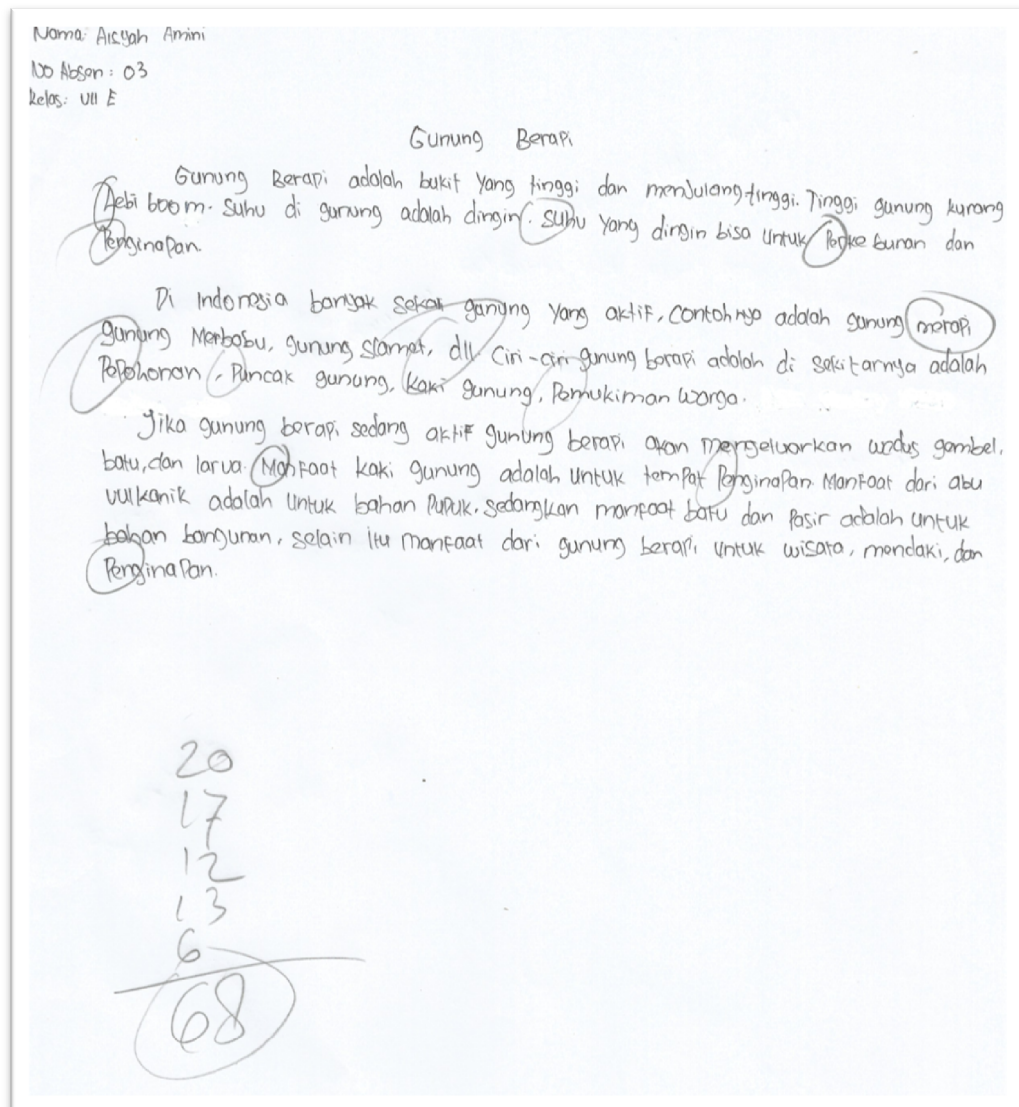 Nama: Aisyah Amini
No Absen: 03
Kelas: VII E
Gunung Berapi
Gunung Berapi adalah bukit yang tinggi dan menjulang tinggi. Tinggi gunung kurang
lebi 600 m. Suhu di gunung adalah dingin. suhu yang dingin bisa untuk Perkebunan dan
Penginapan.
Di Indonesia banyak sekali gunung yang aktif, contohnya adalah gunung merapi
gunung Merbabu, gunung slamet, dll. Ciri-ciri gunung berapi adalah di sekitarnya adalah
Pepohonan, Puncak gunung, kaki gunung, Pemukiman warga.
Jika gunung berapi sedang aktif gunung berapi akan mengeluarkan wedus gembel,
batu, dan larva. Manfaat kaki gunung adalah untuk tempat Penginapan. Manfaat dari abu
vulkanik adalah untuk bahan Pupuk. Sedangkan manfaat batu dan Pasir adalah untuk
bahan bangunan, selain itu manfaat dari gunung berapi untuk wisata, mendaki, dan
Penginapan.
20
17
12
13
6
68